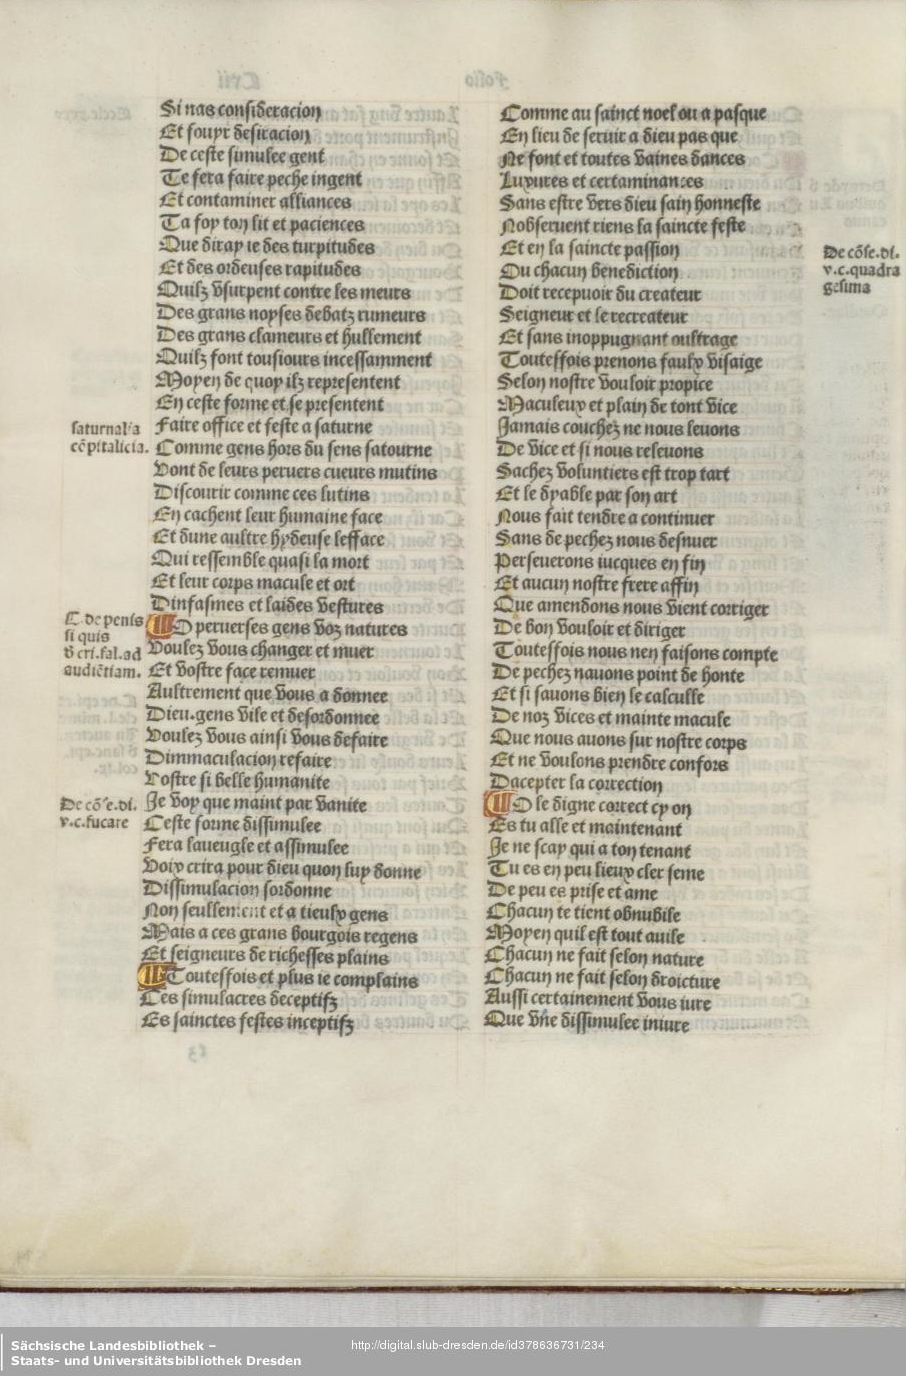 Si nas consideracion
Et souyr desiracion
De ceste simulee gent
Te fera faire peche ingent
Et contaminer alliances
Ta foy ton lit et paciences
Que diray ie des turpitudes
Et des ordeuses rapitudes
Quilz vsurpent contre les meurs
Des grans noyses debatz rumeurs
Des grans clameurs et hullement
Quilz font tousiours incessamment
Moyen de quoy ilz representent
En ceste forme et se presentent
Faire office et feste a saturne
Comme gens hors du sens satourne
Vont de leurs peruers cueurs mutins
Discourir comme ces lutins
En cachent leur humaine face
Et dune aultre hydeuse lefface
Qui ressemble quasi la mort
Et leur corps macule et ort
Dinfasmes et laides vestures
O peruerses gens voz natures
Voulez vous changer et muer
Et vostre face remuer
Aultrement que vous a donnee
Dieu.gens vile et desordonnee
Voulez vous ainsi vous defaire
Dimmaculacion refaire
Vostre si belle humanite
Je voy que maint par vanite
Ceste forme dissimulee
Fera laueugle et assimulee
Voix crira pour dieu quon luy donne
Dissimulacion sordonne
Non seullement et a tieulx gens
Mais a ces grans bourgois regens
Et seigneurs de richesses plains
Touteffois et plus ie complains
Ces simulacres deceptifz
Es sainctes festes inceptifz
saturnalia
cōpitalicia.
C. de penis
si quis
v cri.fal.ad
audiētiam.
De cōse.di.
v.c.fucare
Comme au sainct noel ou a pasque
En lieu de seruir a dieu pas que
Ne font et toutes vaines dances
Luxures et certaminances
Sans estre vers dieu sain honneste
Nobseruent riens la saincte feste
Et en la saincte passion
Ou chacun benediction
Doit recepuoir du createur
Seigneur et le recreateur
Et sans inoppugnant oultrage
Touteffois prenons faulx visaige
Selon nostre vouloir propice
Maculeux et plain de tont vice
Jamais couchez ne nous leuons
De vice et si nous releuons
Sachez voluntiers est trop tart
Et le dyable par son art
Nous fait tendre a continuer
Sans de pechez nous desnuer
Perseuerons iucques en fin
Et aucun nostre frere affin
Que amendons nous vient corriger
De bon vouloir et diriger
Touteffois nous nen faisons compte
De pechez nauons point de honte
Et si sauons bien le calculle
De noz vices et mainte macule
Que nous auons sur nostre corps
Et ne voulons prendre confors
Dacepter la correction
O le digne correct cy on
Es tu alle et maintenant
Je ne scay qui a ton tenant
Tu es en peu lieux cler seme
De peu es prise et ame
Chacun te tient obnubile
Moyen quil est tout auile
Chacun ne fait selon nature
Chacun ne fait selon droicture
Aussi certainement vous iure
Que vne dissimulee iniure
De cōse.di.
v.c.quadra
gesima
Sächsische Landesbibliothek –
Staats- und Universitätsbibliothek Dresden
http://digital.slub-dresden.de/id378636731/234